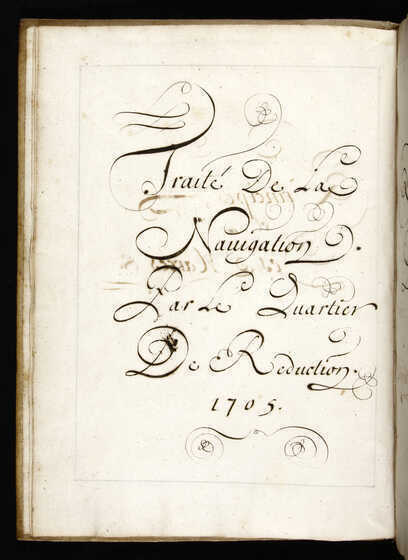 Traité De La
Navigation.
Par Le Quartier
De Reduction.
1705.